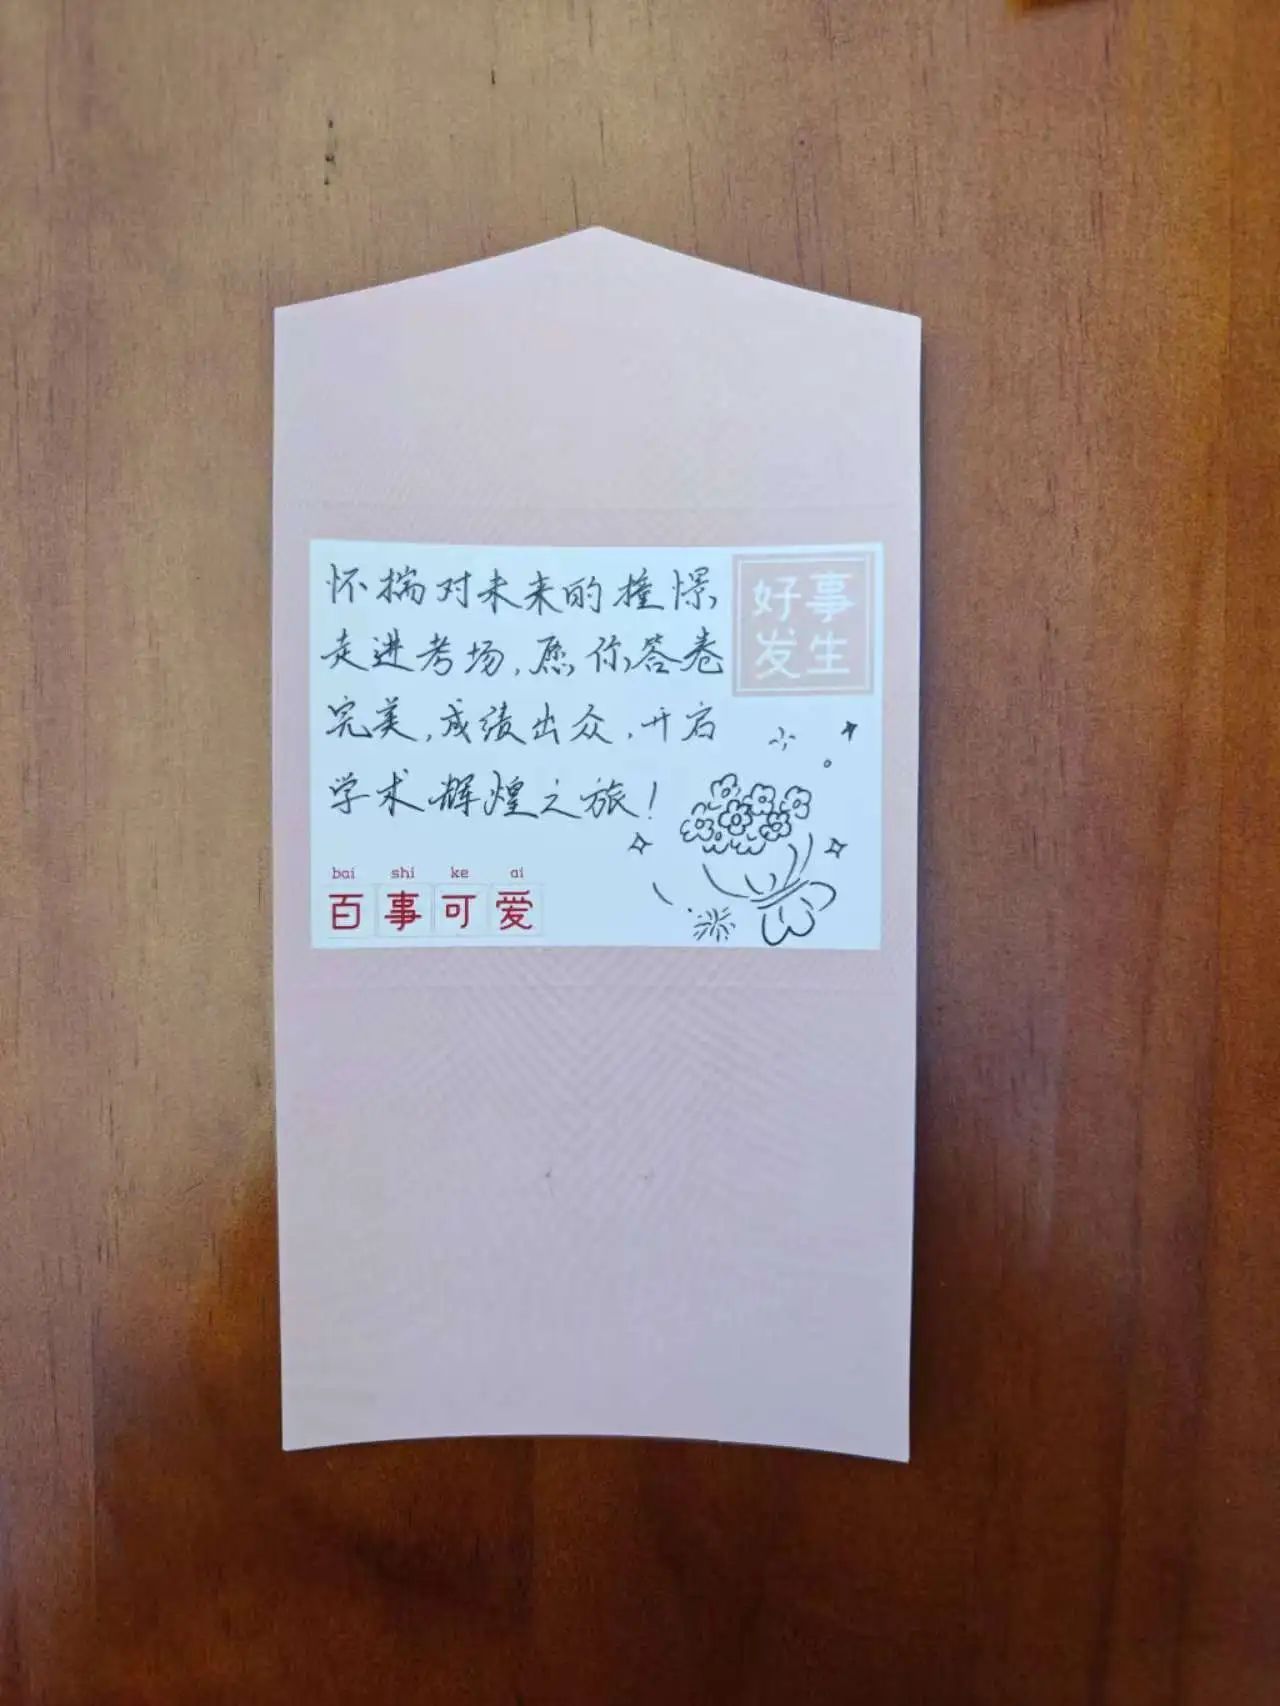 怀揣对未来的撞憬,
走进考场,愿你答卷
完美,成绩出众,开启
学术辉煌之旅!
好事
发生
bai shi ke ai
百事可爱